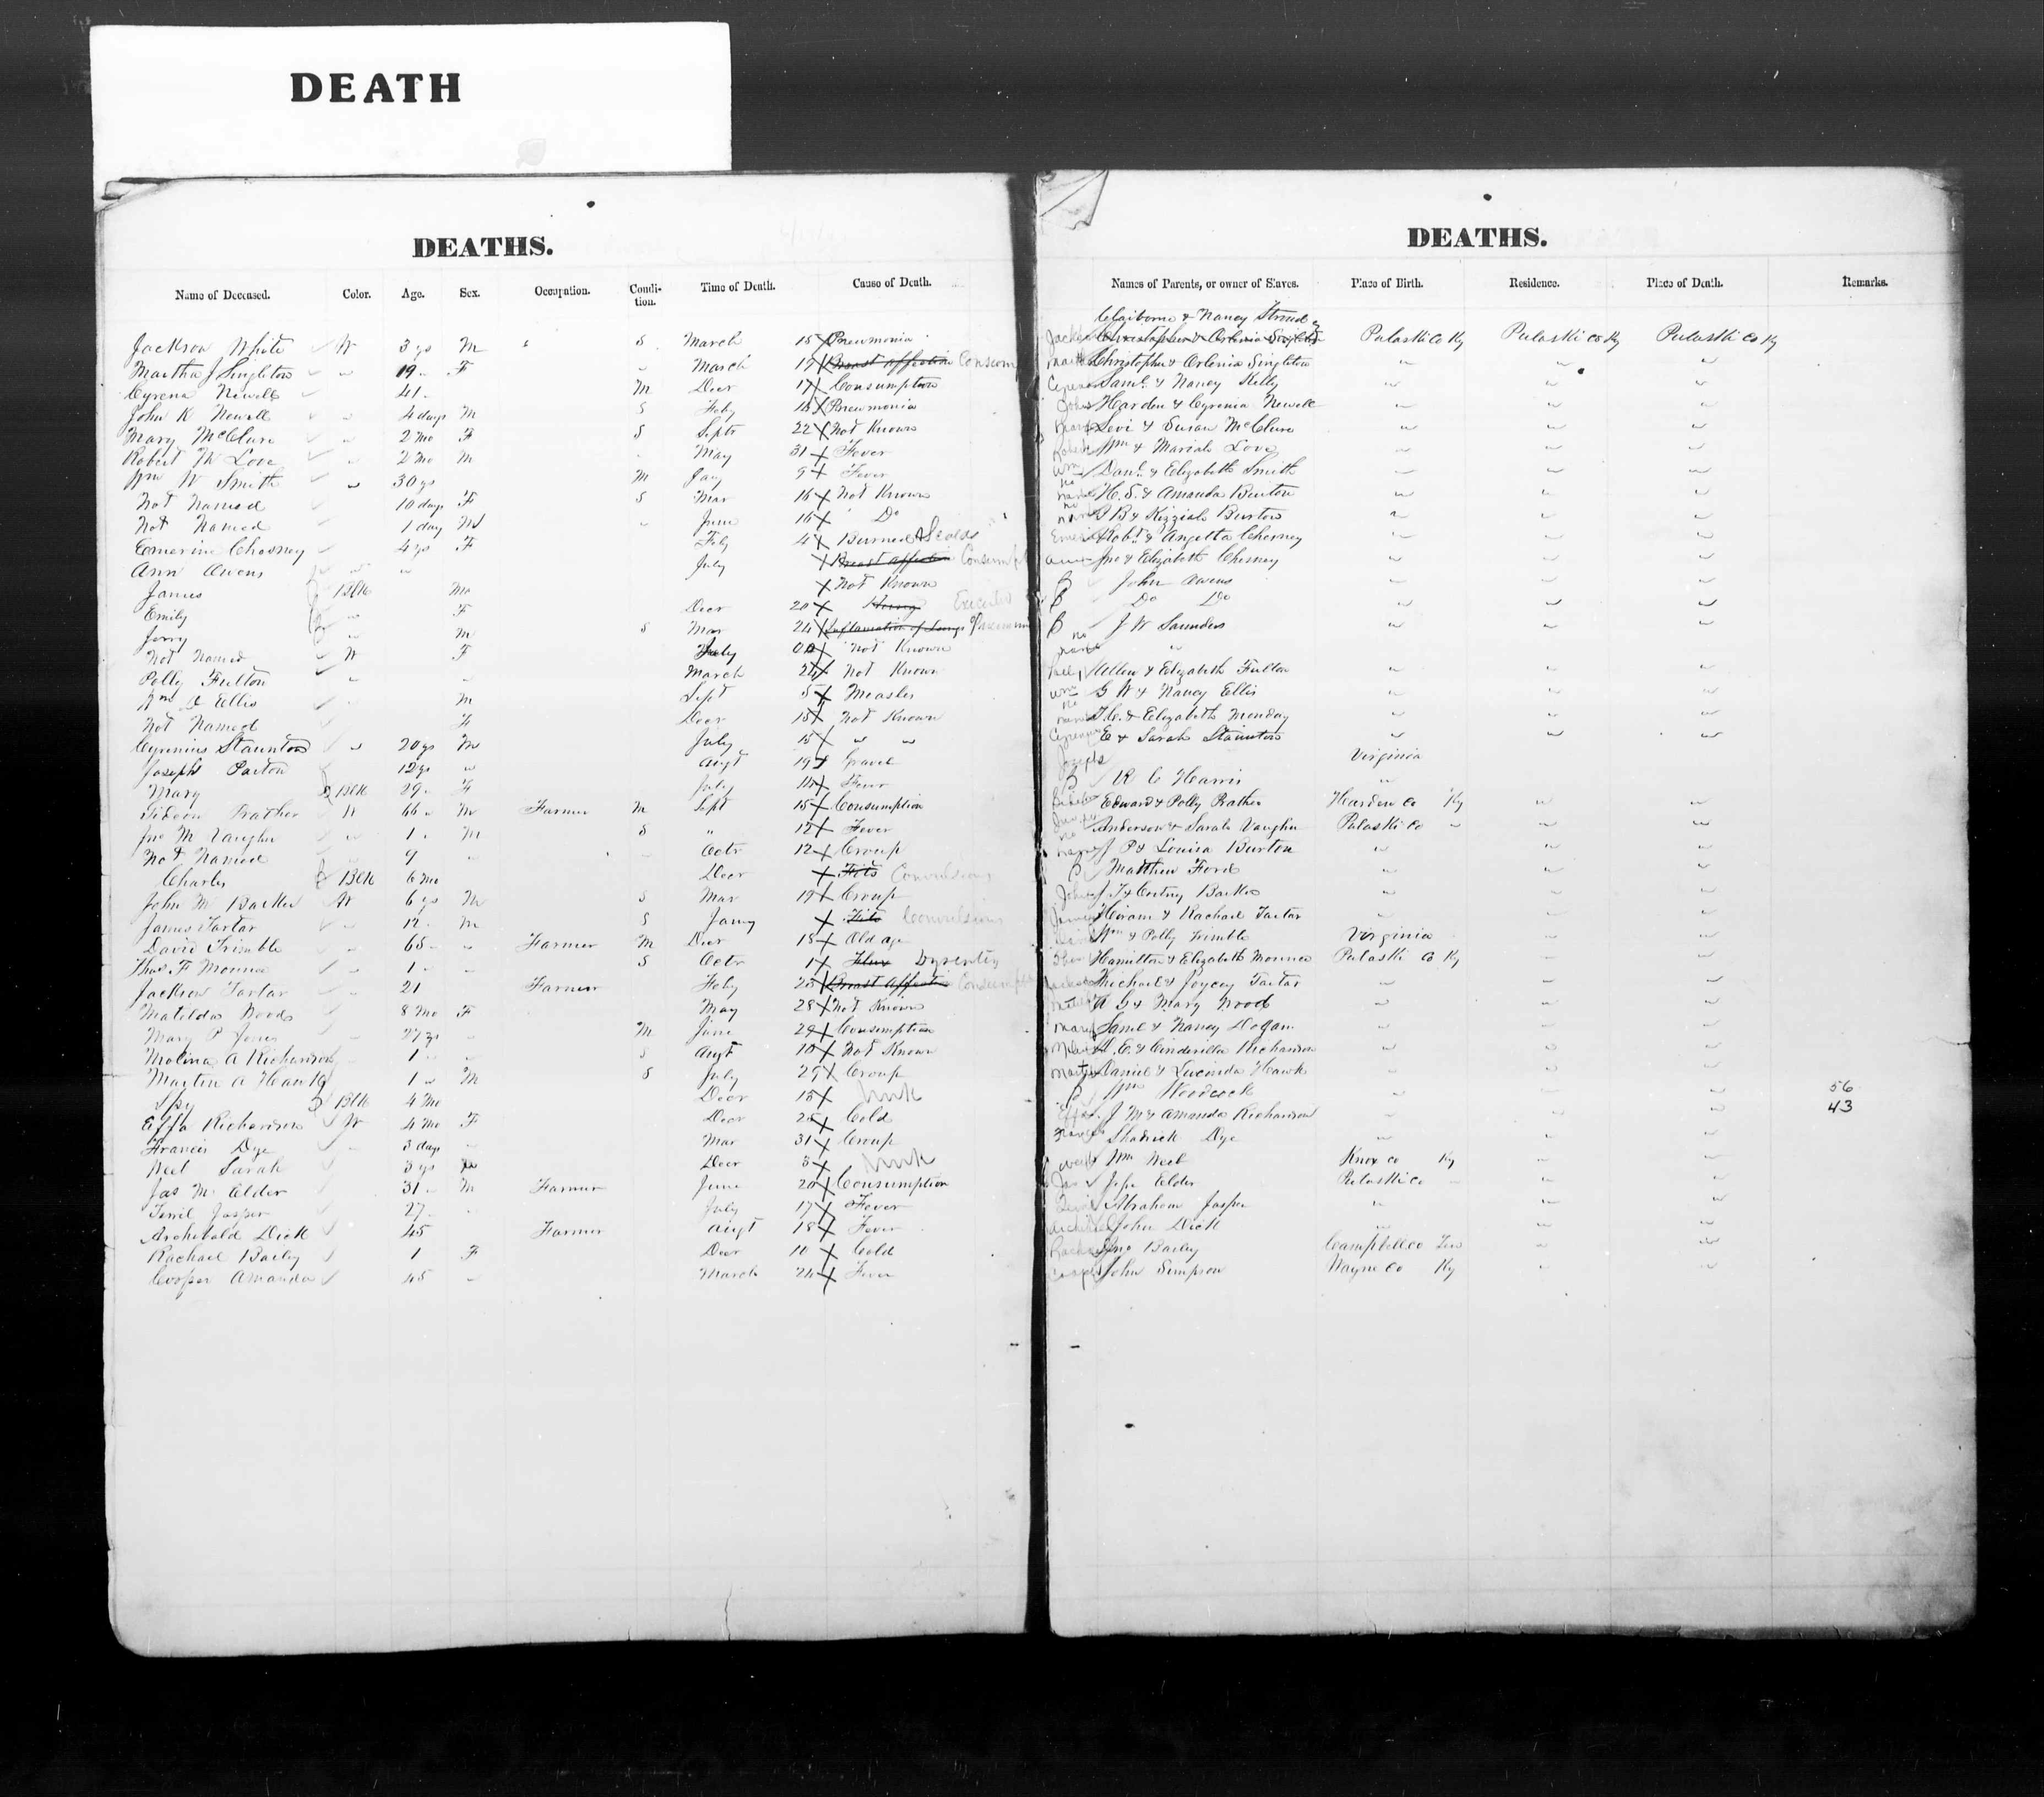 DEATH
DEATHS.
Name of Deceased. Color. Age. Sex. Occupation. Condi-tion. Time of Death. Cause of Death.
Jackson White W 3 ys M S March 15 Pneumonia
Martha J Singleton " 19 " F " March 17 Breast affection Consum
Cyrena Newell 41 " M Decr 17 Consumption
John K Newell " 4 days M S Feby 14 Pneumonia
Mary McClure " 2 mo F S Septr 22 Not Known
Robert M Love " 2 mo M " May 31 Fever
Wm W Smith " 30 ys M Jany 9 Fever
Not Named 10 days F S Mar 16 Not Known
Not Named 1 day M " June 16 Do
Emerine Chesney 4 ys F Feby 4 Burned Scalds
Ann Owens " " July Breast affection Consumpt
James Blk M Not Known
Emily " F Decr 20 Hung Executed
Jerry " M S Mar 24 Inflamation of Lungs Pneumoni
Not Named W F July Not Known
Polly Fulton " " March 24 Not Known
Wm Ellis M Sept 5 Measles
Not Named F Decr 15 Not Known
Cyrenius Staunton " 20 ys M July 15 " "
Joseph Parton 12 ys " Augt 19 Gravel
Mary Blk 29 " F July 14 Fever
Gideon Prather W 66 " M Farmer M Sept 15 Consumption
Jno M Vaughn " 1 " M S " 12 Fever
Not Named 9 " Octr 12 Croup
Charles Blk 6 mo Decr Fits Convulsions
John M Barker W 6 ys M S Mar 19 Croup
James Tartar 12 " M S Jany Fits Convulsions
David Trimble 65 " " Farmer M Decr 15 Old age
Thos F Mounce 1 " " S Octr 1 Flux Dysentry
Jackson Tartar 21 Farmer Feby 23 Breast affection Consumption
Matilda Woods 8 mo F May 28 Not Known
Mary P Jones 27 ys " M June 29 Consumption
Molina A Richardson 1 " " S Augt 10 Not Known
Martin A Hawk 1 " M S July 29 Croup
Blk 4 mo Decr 15
Effa Richardson W 4 mo F Decr 25 Cold
Francis Dye 3 days " Mar 31 Croup
Neel Sarah 3 ys Decr 3
Jas M Elder 31 " M Farmer June 20 Consumption
Terril Jasper 27 " " July 17 Fever
Archibald Dick 45 Farmer Augt 18 Fever
Rachael Bailey 1 F Decr 10 Cold
Cooper Amanda 45 " March 24 Fever
DEATHS.
Names of Parents, or owner of Slaves. Place of Birth. Residence. Place of Death. Remarks.
Claiborne & Nancy Stroud
Jackson Christopher & Orlenia Singleton Pulaski Co Ky Pulaski Co Ky Pulaski Co Ky
Martha Christopher & Orlenia Singleton " " "
Cyrena Saml. & Nancy Kelly " " "
John Harden & Cyrenia Newell " " "
Mary Levi & Susan McClure " " "
Robert Wm & Mariah Love " " "
Wm Danl. & Elizabeth Smith " " "
No name H. S. & Amanda Burton " " "
No name J B & Kizziah Burton " " "
Robt. & Angetta Chesney " " "
Jno & Elizabeth Chesney " " "
B John Owens " " "
B Do Do " " "
B J W Saunders " " "
No name " " " "
Allen & Elizabeth Fulton " " "
Wm G W & Nancy Ellis " " "
No name T. C. & Elizabeth Monday " " "
E & Sarah Staunton " " "
Joseph Virginia
B R C Harris "
Edward & Polly Prather Harden Co Ky " "
Anderson & Sarah Vaughn Pulaski Co " " "
No name J P & Louisa Burton " " "
B Matthew Ford " " "
John J. T & Barker " " "
James Hiram & Rachael Tartar " " "
Wm & Polly Trimble Virginia " "
Hamilton & Elizabeth Mounce Pulaski Co Ky " "
Jackson Michael & Joycey Tartar " " "
A G & Mary Wood " " "
Mary Saml & Nancy Hogan " " "
E. & Cinderilla Richardson " " "
Martin Daniel & Lucinda Hawk " " "
B Wm Woodcock " " " 56
Effa J M & Amanda Richardson " " " 43
Shadrick Dye " " "
Wm Neel Knox Co Ky " "
Jas Jesse Elder Pulaski Co " " "
Abraham Jasper " " "
John Dick " " "
Jno Bailey Campbell Co Ten " "
Cooper John Simpson Wayne Co Ky " "